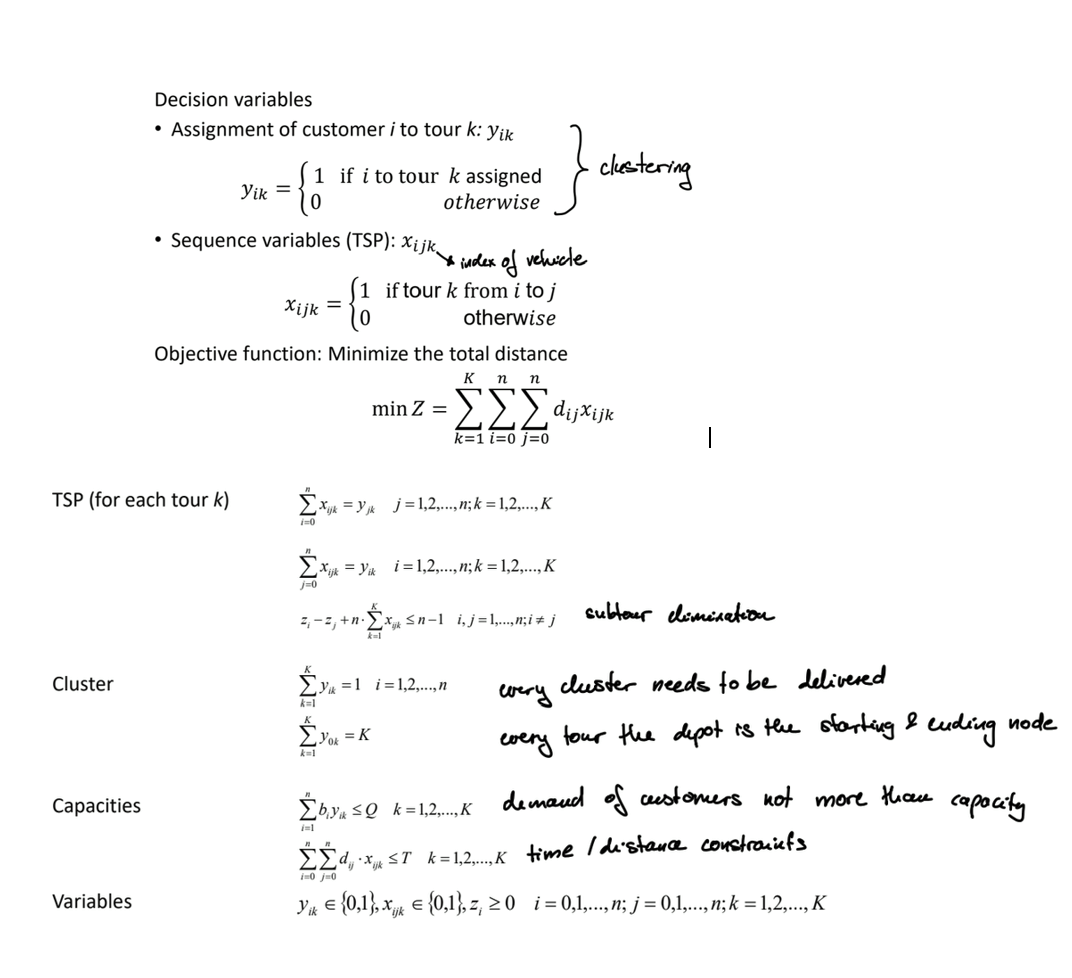 Decision variables
• Assignment of customer i to tour k: y_ik
y_ik = { 1 if i to tour k assigned
0 otherwise
clustering
• Sequence variables (TSP): x_ijk
index of vehicle
x_ijk = { 1 if tour k from i to j
0 otherwise
Objective function: Minimize the total distance
min Z = ∑_{k=1}^{K} ∑_{i=0}^{n} ∑_{j=0}^{n} d_ij x_ijk
TSP (for each tour k) ∑_{i=0}^{n} x_ijk = y_jk j = 1,2,...,n; k = 1,2,...,K
∑_{j=0}^{n} x_ijk = y_ik i = 1,2,...,n; k = 1,2,...,K
z_i − z_j + n · ∑_{k=1}^{K} x_ijk ≤ n − 1 i, j = 1,...,n; i ≠ j subtour elimination
Cluster ∑_{k=1}^{K} y_ik = 1 i = 1,2,...,n every cluster needs to be delivered
∑_{k=1}^{K} y_0k = K every tour the depot is the starting & ending node
Capacities ∑_{i=1}^{n} b_i y_ik ≤ Q k = 1,2,...,K demand of customers not more than capacity
∑_{i=0}^{n} ∑_{j=0}^{n} d_ij · x_ijk ≤ T k = 1,2,...,K time / distance constraints
Variables y_ik ∈ {0,1}, x_ijk ∈ {0,1}, z_i ≥ 0 i = 0,1,...,n; j = 0,1,...,n; k = 1,2,...,K